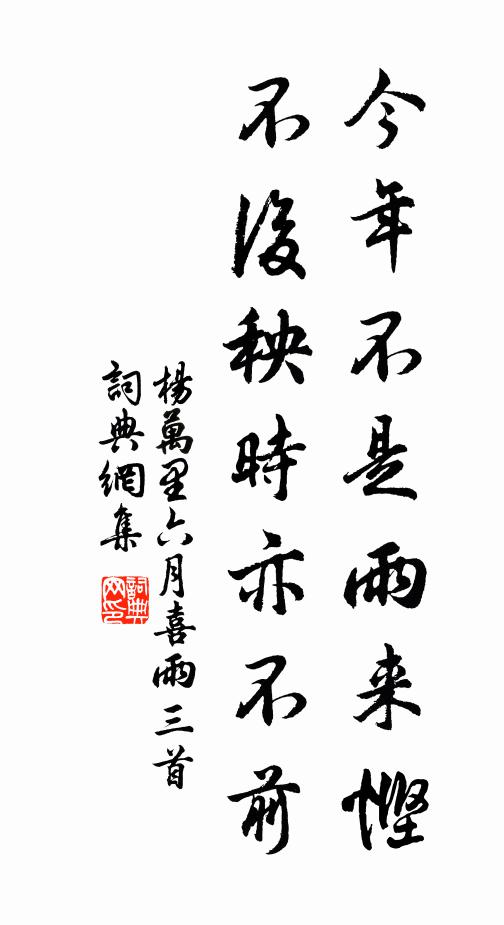 今年不是雨来慳
不後秧時亦不前
楊萬里六月喜雨三首
詞典網集
詞典
网印